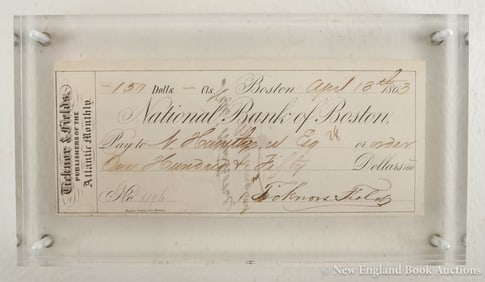 Ticknor & Fields,
PUBLISHERS OF THE
Atlantic Monthly.
150 Dolls. Cts. Boston April 13th 1863
National Bank of Boston,
Pay to N. Esq or order
One Hundred & Fifty Dollars
No
Ticknor & Fields
© New England Book Auctions